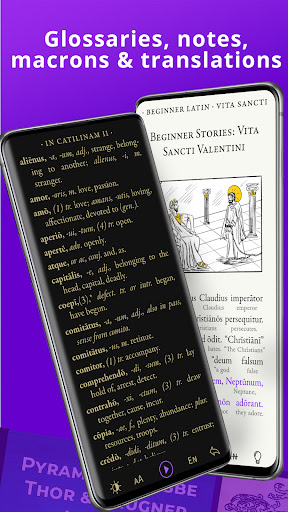 Glossaries, notes,
macrons & translations
• IN CATILINAM II •
aliēnus, -a, -um, adj., strange, belong-
ing to another; aliēnus, -ī, m.
stranger.
amor, -ōris, m. love, passion.
amō, (1) tr. love; amans, -ntis, loving,
affectionate, devoted to (gen.).
aperiō, -uī, -tum, (4) tr. open.
apertē, adv. openly.
atque, or ac, conj. and, as.
capitālis, -e, adj., belonging to the
head, capital, deadly.
coepī, (3), defect. tr. or intr. began,
have begun.
comitātus, -a, -um, adj., also in pass.
sense from comito.
comitātus, -ūs, m. retinue.
comitō, (1) tr. accompany.
comprehendō, -dī, -sum, (3) tr. lay
hold of, arrest, detect.
contrahō, -xī, -tum, (3) tr. draw
together, cause, incur.
cōpia, -ae, f., plenty, abundance; plur.
resources, troops.
dēdō, -didī, -ditum, (3) tr. give
AA
EN
• BEGINNER LATIN • VITA SANCTI
Beginner Stories: Vita
Sancti Valentini
Claudius imperātor
Claudius emperor
Christiānōs persequitur.
Christians persecutes.
ōdit. "Christiānī
hates. "The Christians
deum falsum
"a god false
Neptūnum,
Neptune,
nōn adōrant.
not they adore.
Thor &